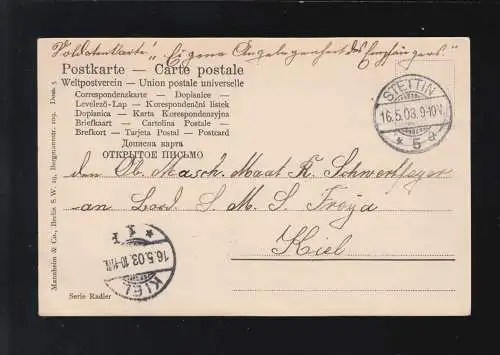 „Soldatenkarte“ „Eigene Angelegenheit des Empfängers.“
Postkarte — Carte postale
Weltpostverein — Union postale universelle
Correspondenzkarte — Dopisnice —
Levelező-Lap — Korespondenční lístek
Dopisnica — Karta Korespondencyjna
Briefkaart — Cartolina Postale —
Brefkort — Tarjeta Postal — Postcard
Дописна карта
ОТКРЫТОЕ ПИСЬМО
STETTIN
16.5.03.9-10V.
* 5 a
den Ob. Masch. Maat R. Schwertfeger
an Bord S. M. S. Freya
Kiel
KIEL
16.5.03.
Mannheim & Co., Berlin S.W. 29, Bergmannstr. 109. Dess. 5
Serie Radler